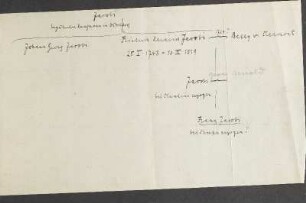 Jacobi
Johann Georg Jacobi
Friedrich Heinrich Jacobi
Betty v. Clermont
25 I 1743 – 10 III 1819
Jacobi
bei Claudius erzogen
Franz Jacobi
bei Claudius erzogen?